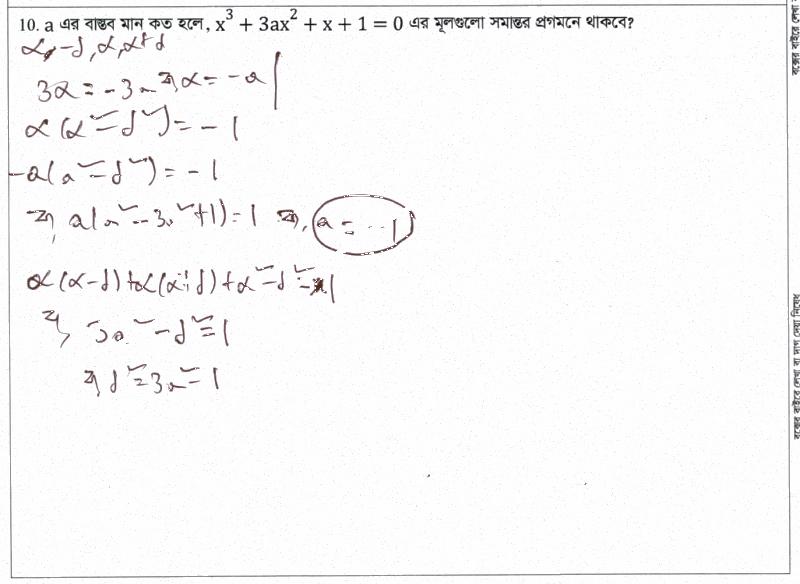 10. a এর বাস্তব মান কত হলে, x³ + 3ax² + x + 1 = 0 এর মূলগুলো সমান্তর প্রগমনে থাকবে?
α - d, α, α+d
3α = -3a বা, α = -a
α(α² - d²) = -1
-a(a² - d²) = -1
বা, a(a² - 3a² + 1) = 1 বা, a = -1
α(α-d) + α(α+d) + α² - d² = 1
বা, 3a² - d² = 1
বা, d² = 3a² - 1
বক্সের বাইরে লেখা বা দাগ দেয়া নিষেধ